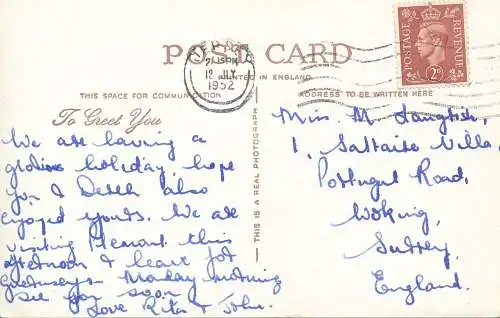 POST CARD
PRINTED IN ENGLAND
THIS SPACE FOR COMMUNICATION
ADDRESS TO BE WRITTEN HERE
To Greet You
THIS IS A REAL PHOTOGRAPH
2.15 PM
12 JLY
1952
POSTAGE
REVENUE
2D
We are having a
glorious holiday, hope
you & Derek also
enjoyed yours. We are
visiting Pleinmont this
afternoon & leave for
Guernsey on Monday morning
See you soon
Love Rita & John.
Miss. M. Langlish,
1, Saltaire Villa,
Portugal Road,
Woking,
Surrey,
England.